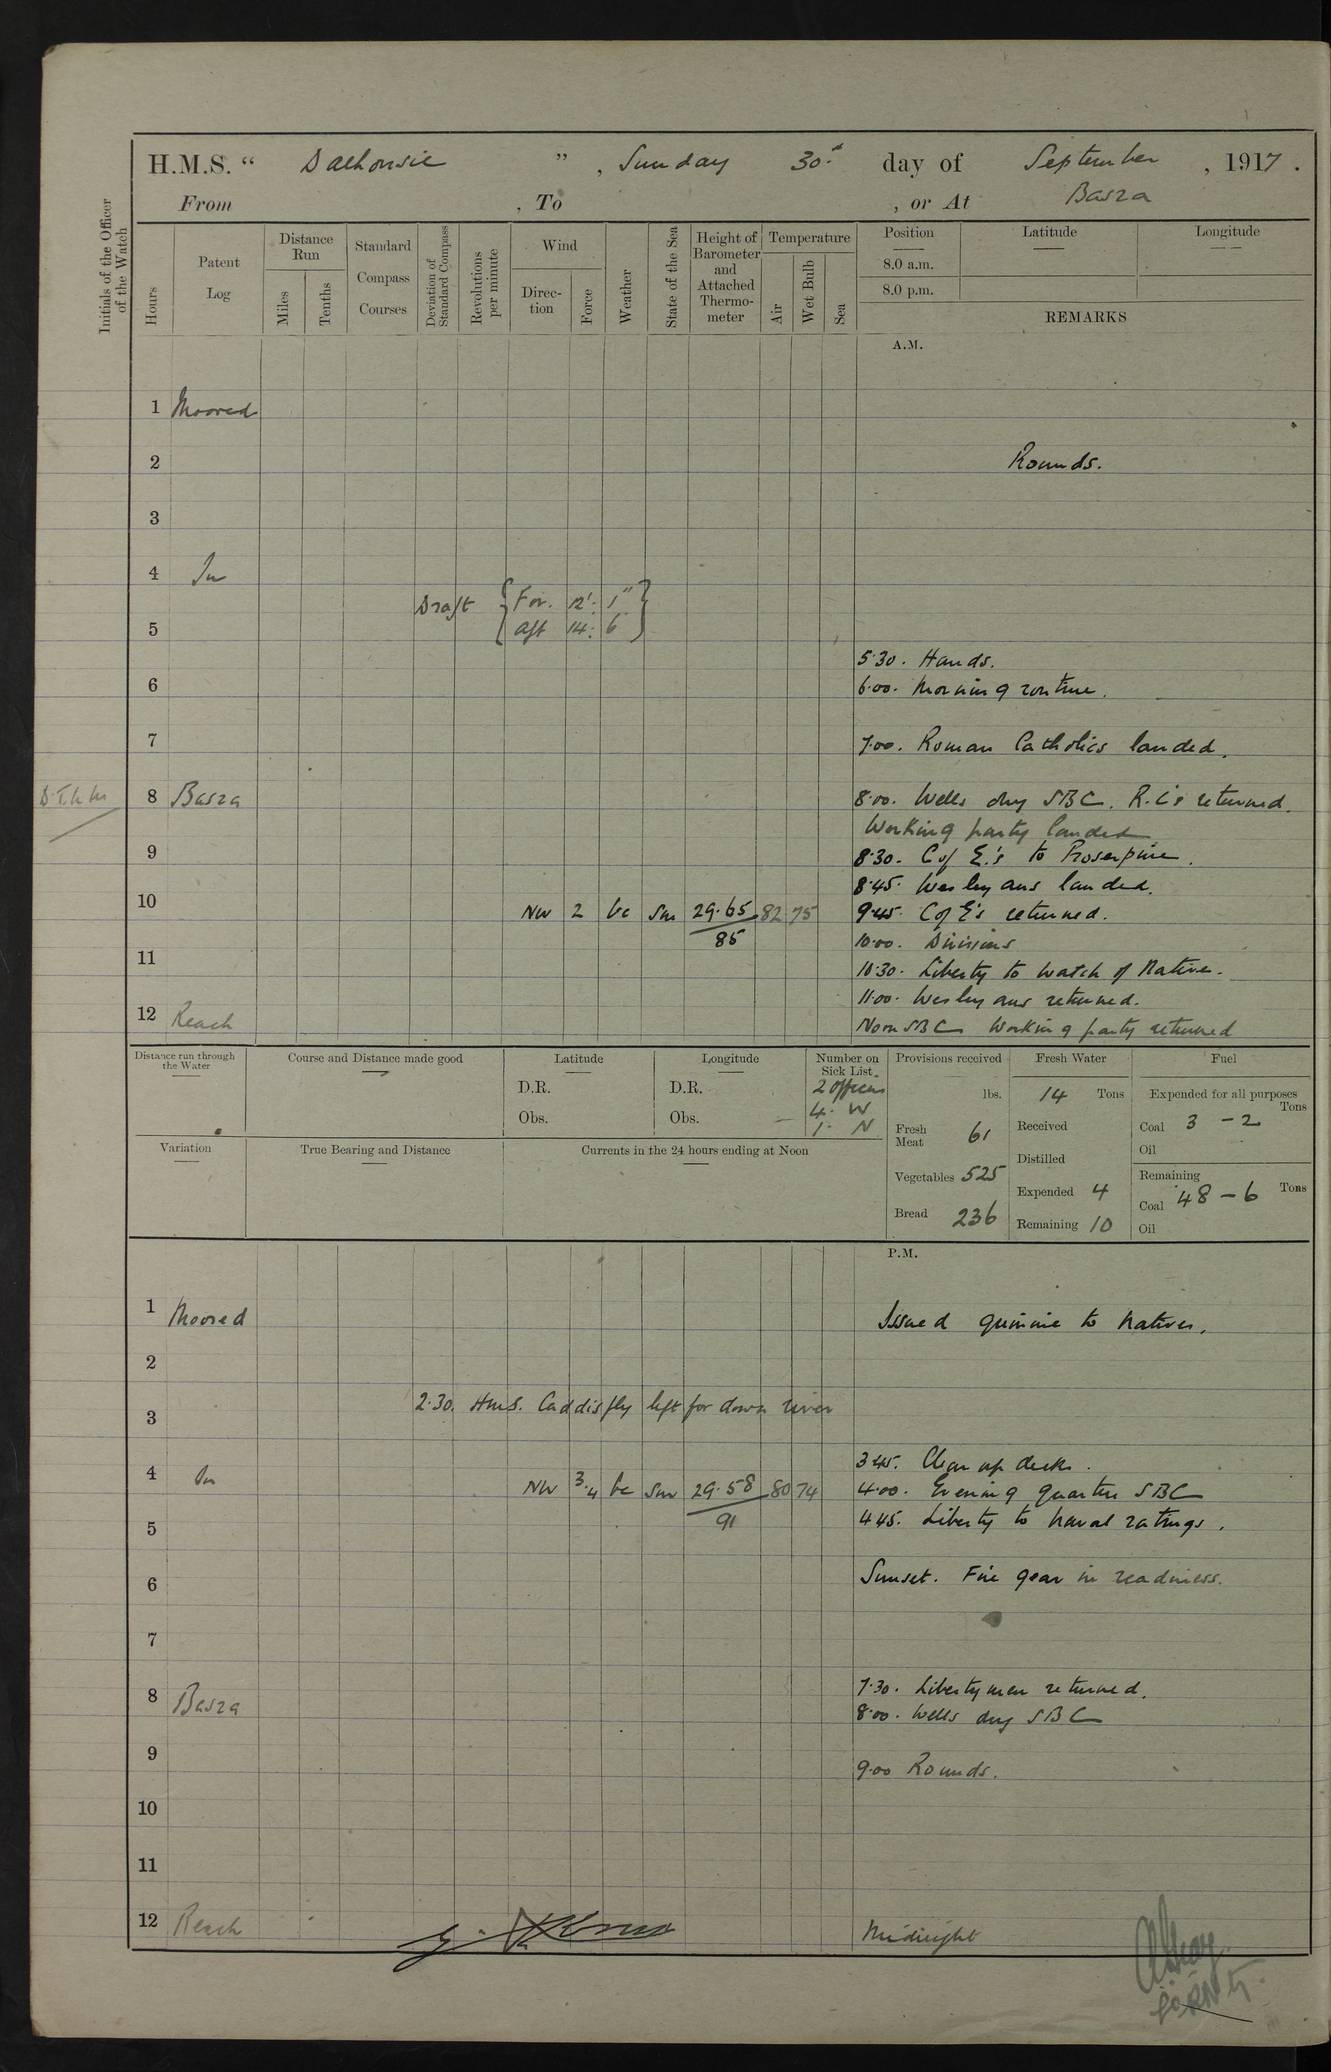 H.M.S. “ Dalhousie ” , Sunday 30th day of September , 1917 .
From , To , or At Basra
Initials of the Officer of the Watch
Hours
Patent Log
Distance Run
Miles
Tenths
Standard Compass Courses
Deviation of Standard Compass
Revolutions per minute
Wind
Direc-tion
Force
Weather
State of the Sea
Height of Barometer and Attached Thermo-meter
Temperature
Air
Wet Bulb
Sea
Position Latitude Longitude
8.0 a.m.
8.0 p.m.
REMARKS
A.M.
1 Moored
2 Rounds.
3
4 In
Draft { For. 12': 1" }
5 { Aft 14: 6 }
5.30. Hands.
6 6.00. Morning routine.
7 7.00. Roman Catholics landed.
8 Basra 8.00. Wells dry SBC. R.C's returned.
Working party landed
9 8.30. C of E.'s to Proserpine.
8.45. Wesleyans landed.
10 NW 2 bc Sm 29.65 82 75 9.45. C of E's returned.
85 10.00. Divisions
11 10.30. Liberty to watch of Native.
11.00. Wesleyans returned.
12 Reach Noon SBC Working party returned
Distance run through the Water
Course and Distance made good
Latitude
D.R.
Obs.
Longitude
D.R.
Obs.
Number on Sick List.
2 officers
4. W
1. N
Provisions received
lbs.
Fresh Meat 61
Vegetables 525
Bread 236
Fresh Water
14 Tons
Received
Distilled
Expended 4
Remaining 10
Fuel
Expended for all purposes
Tons
Coal 3 - 2
Oil
Remaining
Coal 48 - 6 Tons
Oil
Variation
True Bearing and Distance
Currents in the 24 hours ending at Noon
P.M.
1 Moored Issued quinine to natives.
2
2.30. HMS. Caddisfly left for down river
3
3.45. Clear up decks.
4 In NW 3.4 bc Sm 29.58 80 74 4.00. Evening quarters SBC
91
5 4.45. Liberty to naval ratings.
6 Sunset. Fire gear in readiness.
7
8 Basra 7.30. Libertymen returned.
8.00. Wells dry SBC
9 9.00 Rounds.
10
11
12 Reach Midnight